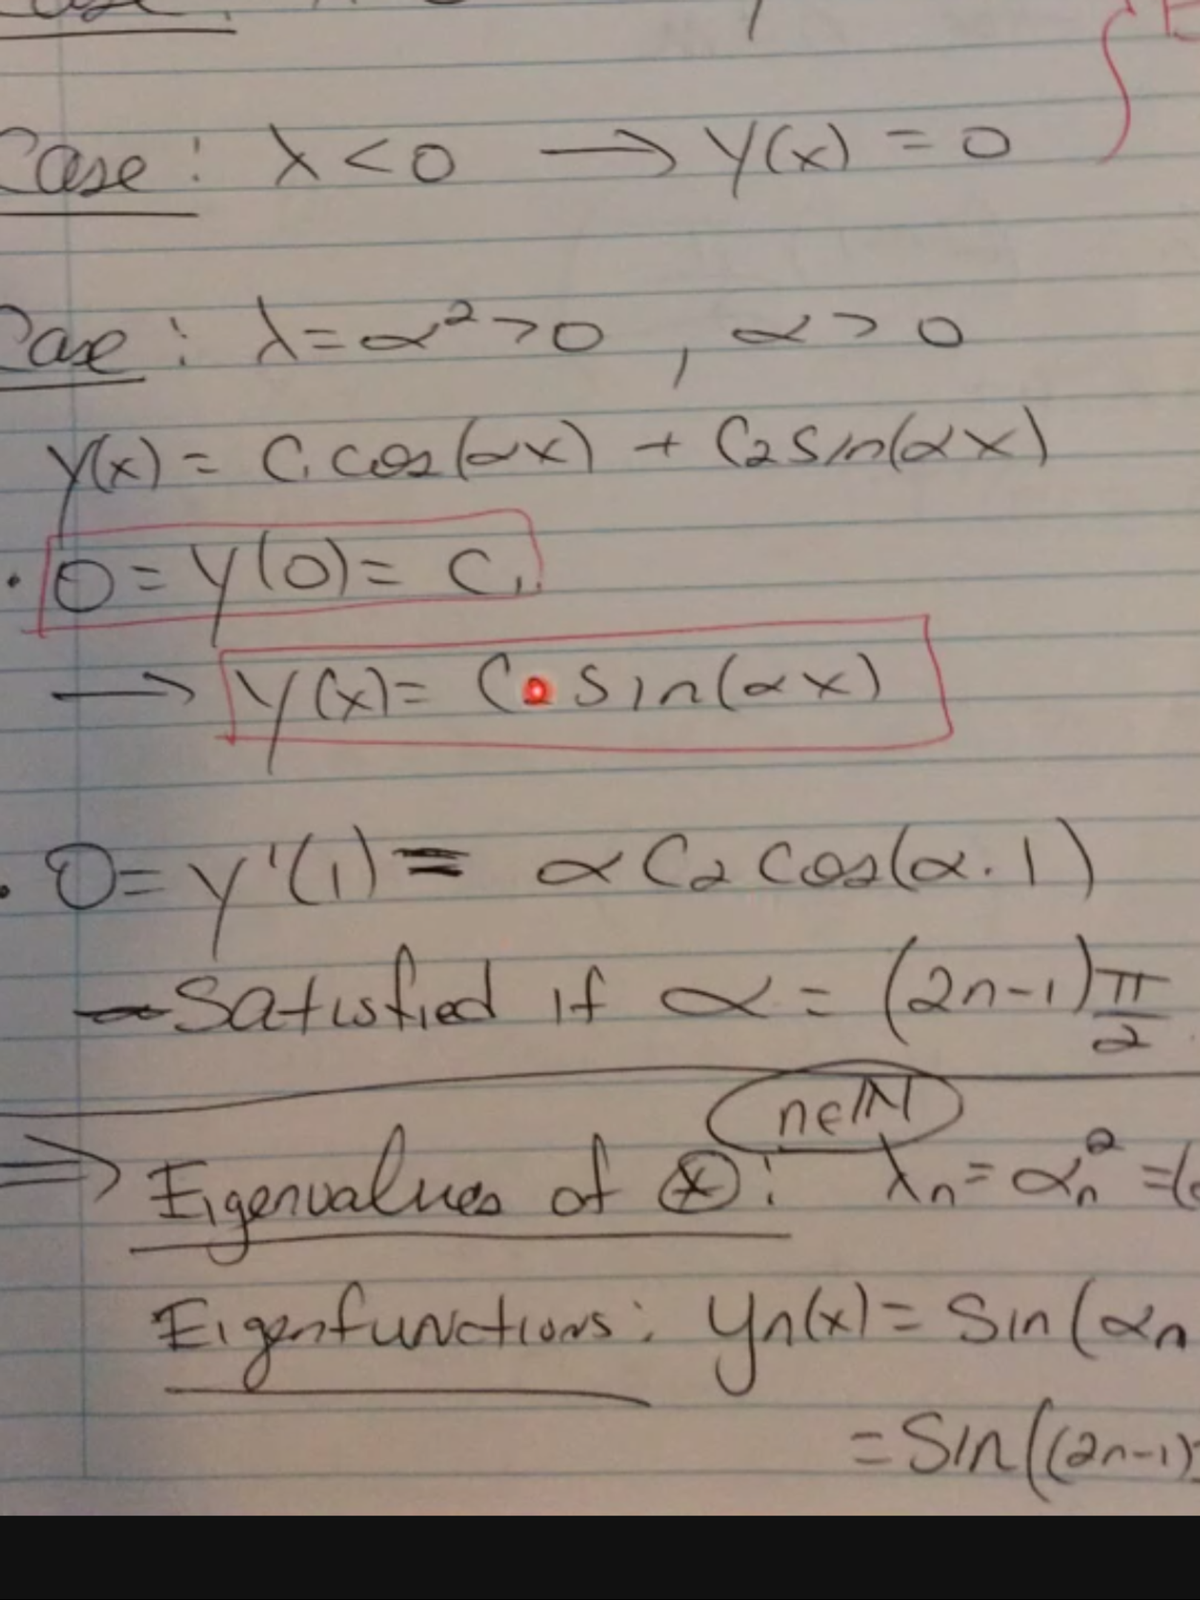 Case: λ < 0 → y(x) = 0
Case: λ = α² > 0 , α > 0
y(x) = C₁ cos(αx) + C₂ sin(αx)
· 0 = y(0) = C₁
→ y(x) = C₂ sin(αx)
· 0 = y'(1) = α C₂ cos(α·1)
- Satisfied if α = (2n-1) π/2
n∈ℕ
⇒ Eigenvalues of ⊛: λₙ = αₙ² = (
Eigenfunctions: yₙ(x) = Sin(αₙ
= Sin((2n-1)